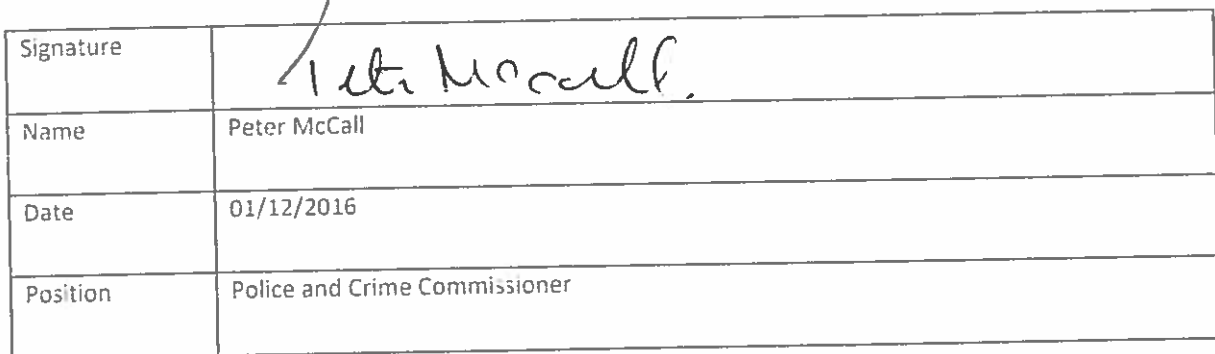 Signature Peter McCall.
Name Peter McCall
Date 01/12/2016
Position Police and Crime Commissioner